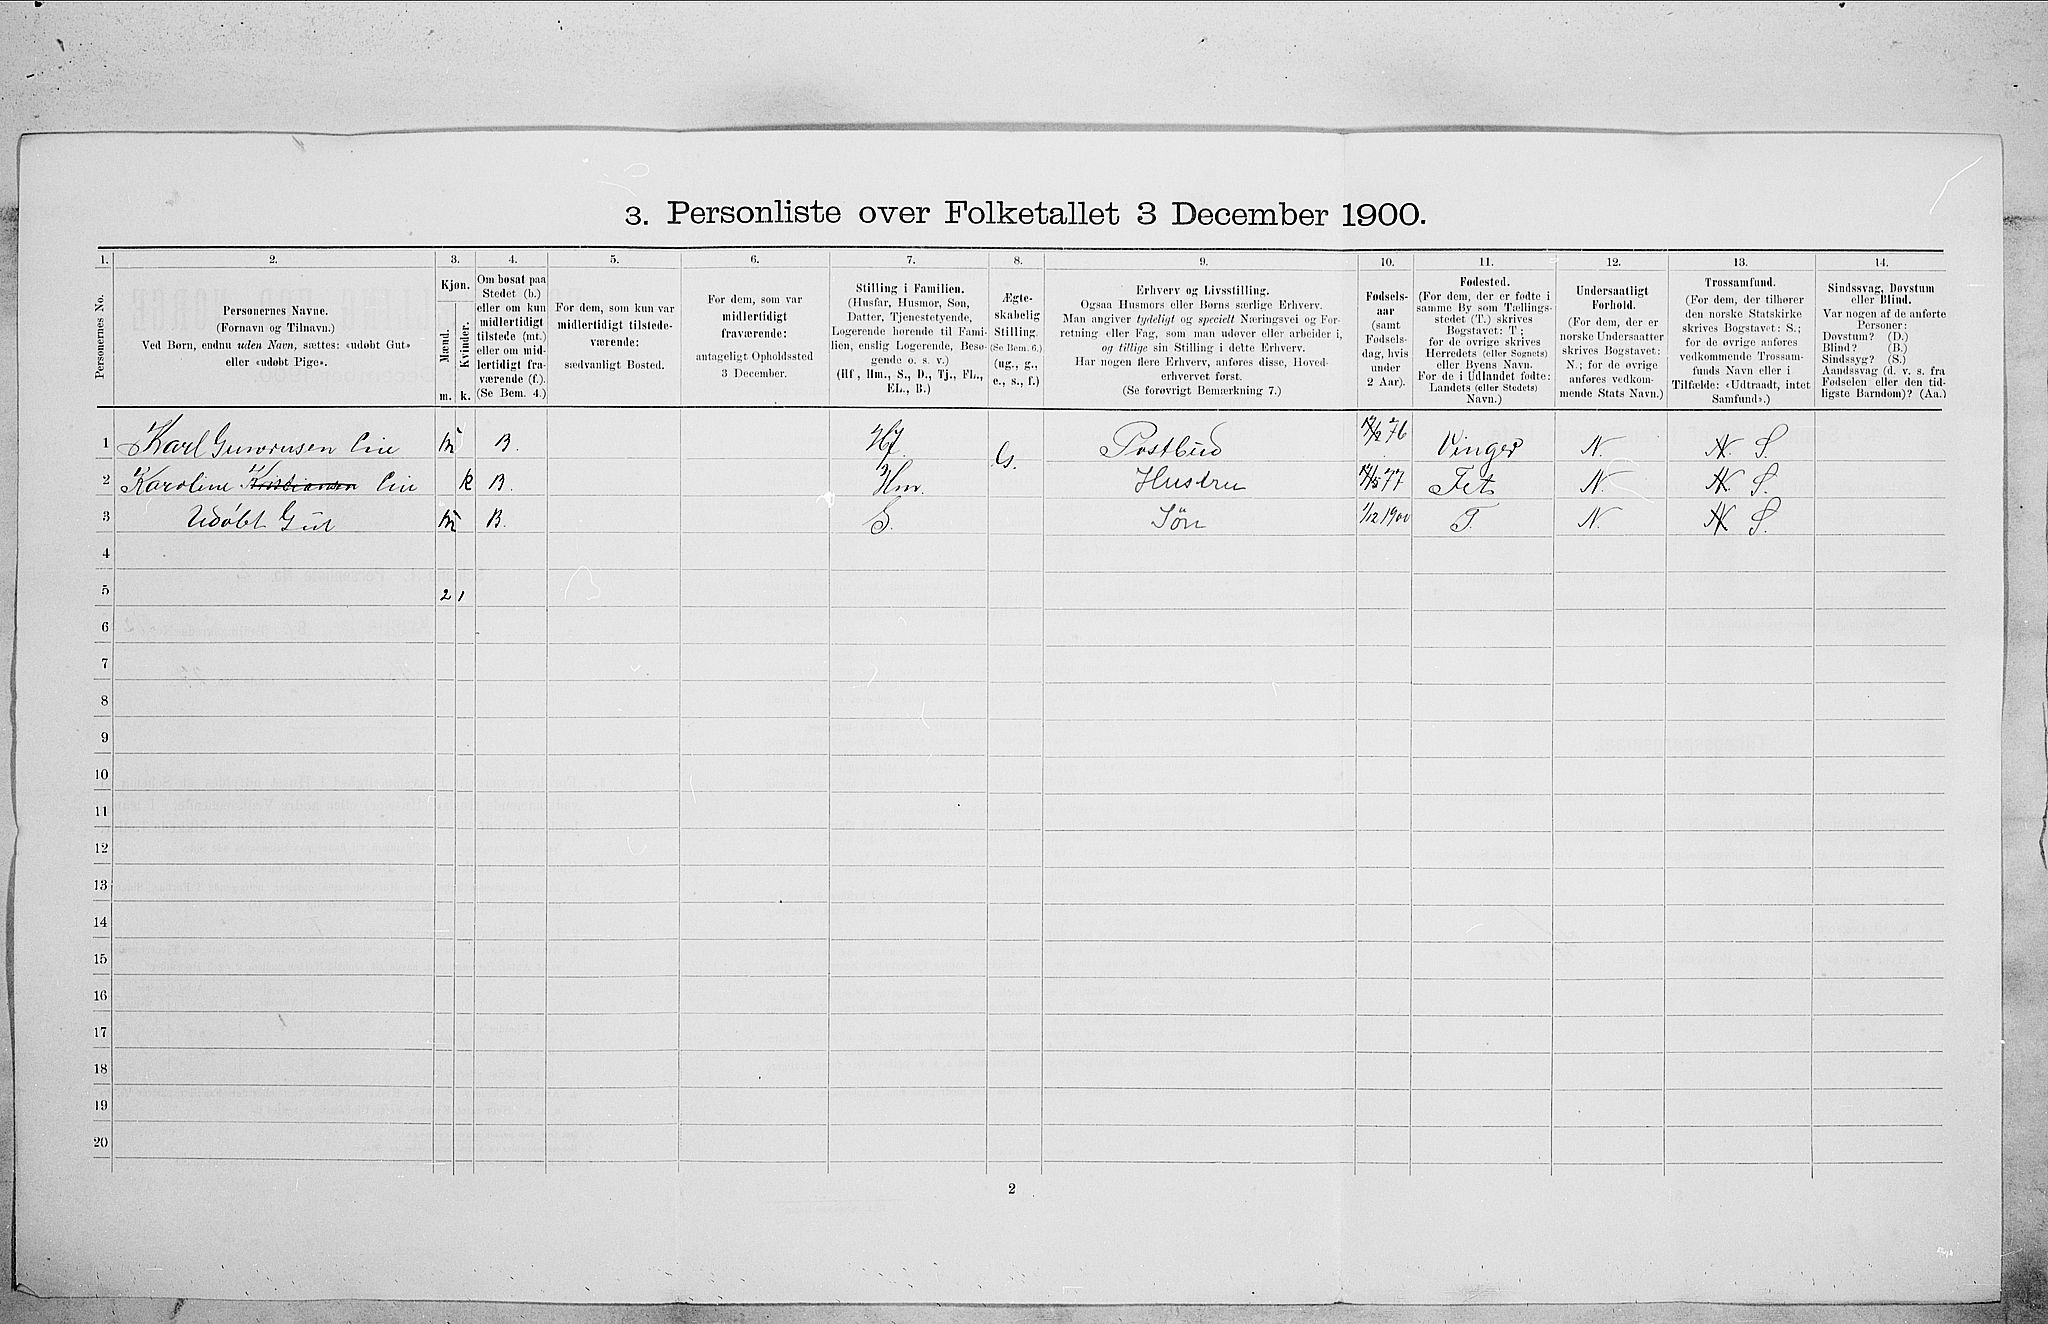 3. Personliste over Folketallet 3 December 1900.
1. 2. 3. 4. 5. 6. 7. 8. 9. 10. 11. 12. 13. 14.
Personernes No.
Personernes Navne.
(Fornavn og Tilnavn.)
Ved Børn, endnu uden Navn, sættes: «udøbt Gut»
eller «udøbt Pige».
Kjøn.
Mænd.
Kvinder.
m. k.
Om bosat paa
Stedet (b.)
eller om kun
midlertidigt
tilstede (mt.)
eller om mid-
lertidigt fra-
værende (f.).
(Se Bem. 4.)
For dem, som kun var
midlertidigt tilstede-
værende:
sædvanligt Bosted.
For dem, som var
midlertidigt
fraværende:
antageligt Opholdssted
3 December.
Stilling i Familien.
(Husfar, Husmor, Søn,
Datter, Tjenestetyende,
Logerende hørende til Fami-
lien, enslig Logerende, Besø-
gende o. s. v.)
(Hf., Hm., S., D., Tj., FL.,
EL., B.)
Ægte-
skabelig
Stilling.
(Se Bem. 6.)
(ug., g.,
e., s., f.)
Erhverv og Livsstilling.
Ogsaa Husmors eller Børns særlige Erhverv.
Man angiver tydeligt og specielt Næringsvei og For-
retning eller Fag, som man udøver eller arbeider i,
og tillige sin Stilling i dette Erhverv.
Har nogen flere Erhverv, anføres disse, Hoved-
erhvervet først.
(Se forøvrigt Bemærkning 7.)
Fødsels-
aar
(samt
Fødsels-
dag, hvis
under
2 Aar).
Fødested.
(For dem, der er fødte i
samme By som Tællings-
stedet (T.) skrives
Bogstavet: T;
for de øvrige skrives
Herredets (eller Sognets)
eller Byens Navn.
For de i Udlandet fødte:
Landets (eller Stedets)
Navn.)
Undersaatligt
Forhold.
(For dem, der er
norske Undersaatter
skrives Bogstavet:
N.; for de øvrige
anføres vedkom-
mende Stats Navn.)
Trossamfund.
(For dem, der tilhører
den norske Statskirke
skrives Bogstavet: S.;
for de øvrige anføres
vedkommende Trossam-
funds Navn eller i
Tilfælde: «Udtraadt, intet
Samfund».)
Sindssvag, Døvstum
eller Blind.
Var nogen af de anførte
Personer:
Døvstum? (D.)
Blind? (B.)
Sindssyg? (S.)
Aandssvag (d. v. s. fra
Fødselen eller den tid-
ligste Barndom)? (Aa.)
1 Karl m B. Hf. G. Postbud 76 Vinger N. N. S.
2 Karoline k B. Hm. Hustru 77 Fet N. N. S.
3 Udøbt Gut m B. S. Søn 1/12 1900 T. N. N S.
4
5 2 1
6
7
8
9
10
11
12
13
14
15
16
17
18
19
20
2